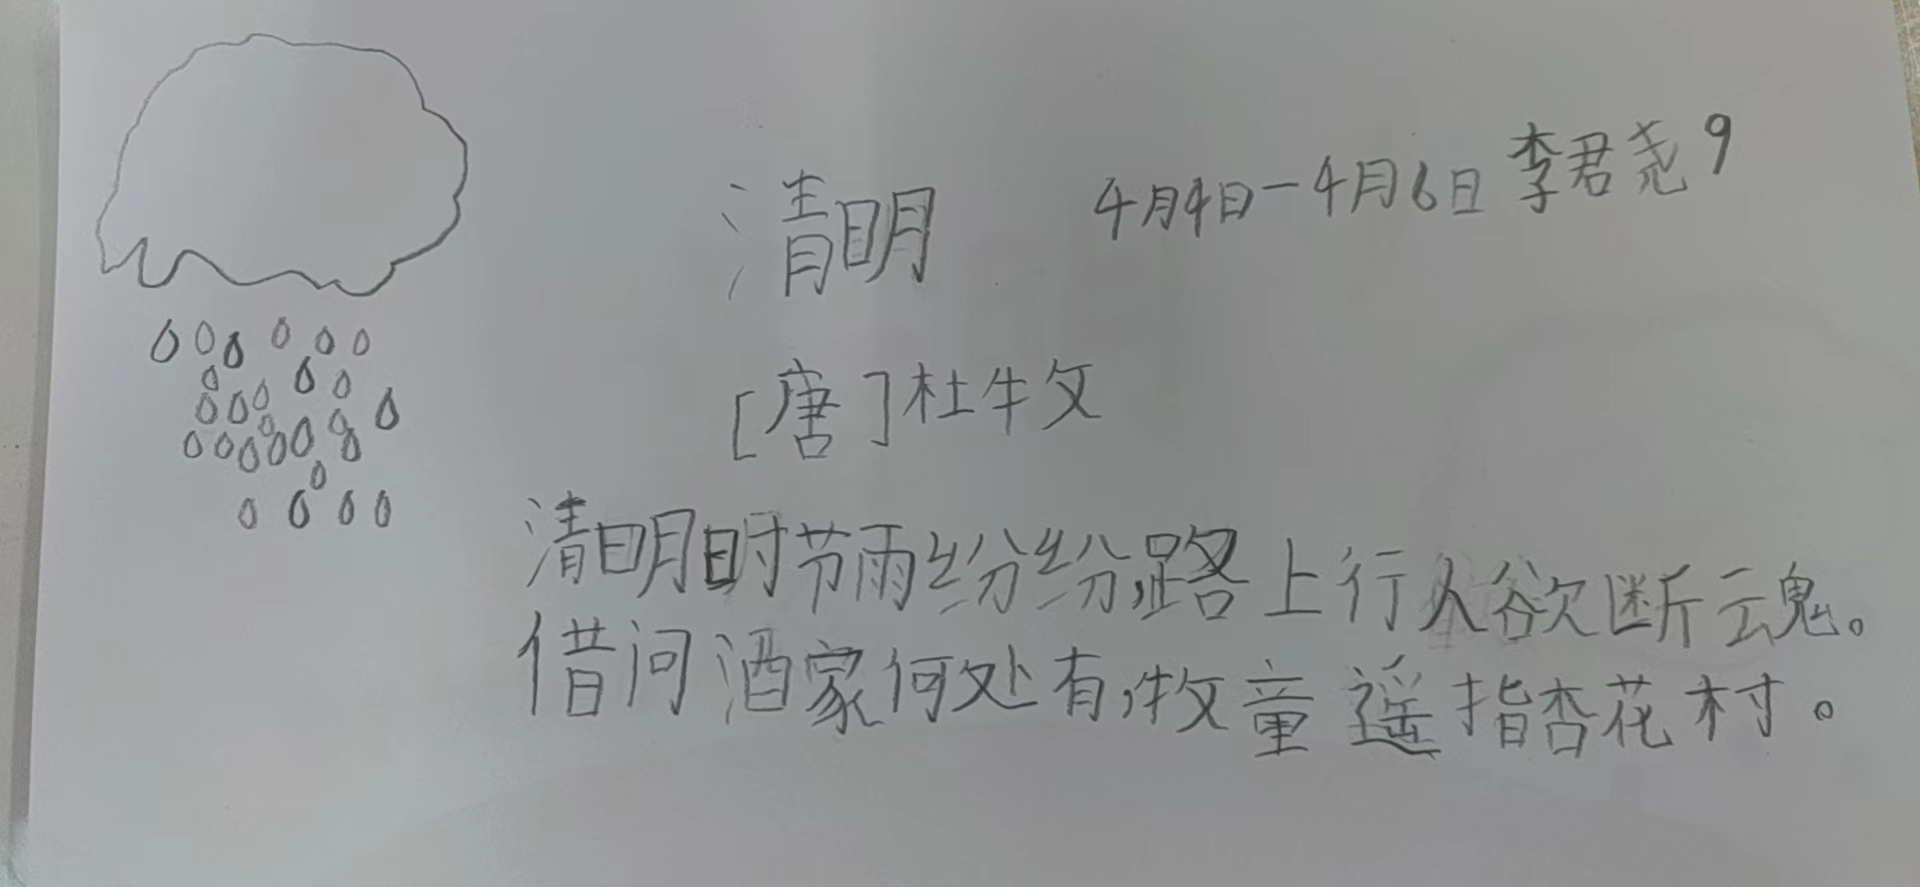 清明 4月4日-4月6日 李君尧 9
[唐]杜牧
清明时节雨纷纷,路上行人欲断魂。
借问酒家何处有,牧童遥指杏花村。